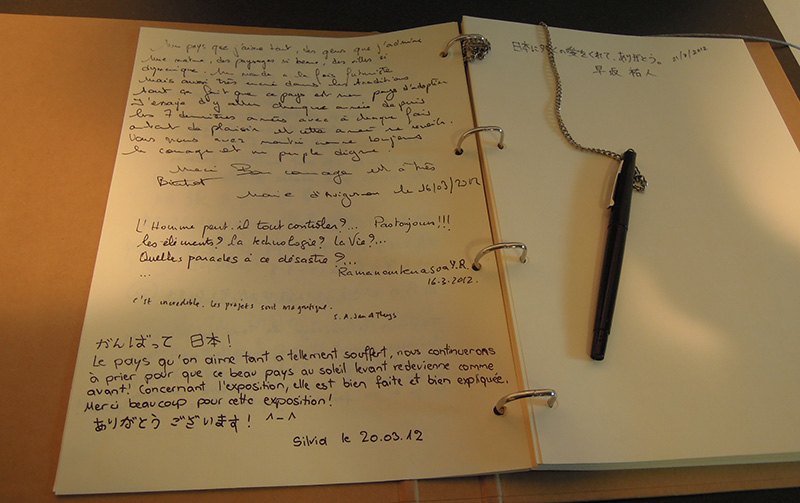 Un pays que j'aime tant, des gens que j'admire
Une nature, des paysages si beaux, des villes si
dynamique. Un monde à la fois futuriste
mais aussi très ancré dans les traditions
tout ça fait que ce pays est mon pays d'adoption
J'essaye d'y aller chaque année depuis
les 7 dernières années avec à chaque fois
autant de plaisir et cette année je
Vous nous avez montré comme toujours
le courage et un peuple digne !
Merci Bon courage et à très
Bientot
Marie d'Avignon le 16/03/2012
L'Homme peut-il tout contrôler?... Pas toujours!!!
les éléments? la technologie? La Vie?...
Quelles parades à ce désastre?...
...
Y.R.
16.3.2012.
C'est incroyable. Les projets sont magnifique.
がんばって 日本！
Le pays qu'on aime tant a tellement souffert, nous continuerons
à prier pour que ce beau pays au soleil levant redevienne comme
avant! Concernant l'exposition, elle est bien faite et bien expliquée.
Merci beaucoup pour cette exposition!
ありがとう ございます！ ^-^
Silvia le 20.03.12
日本に多くの愛をくれて、ありがとう。